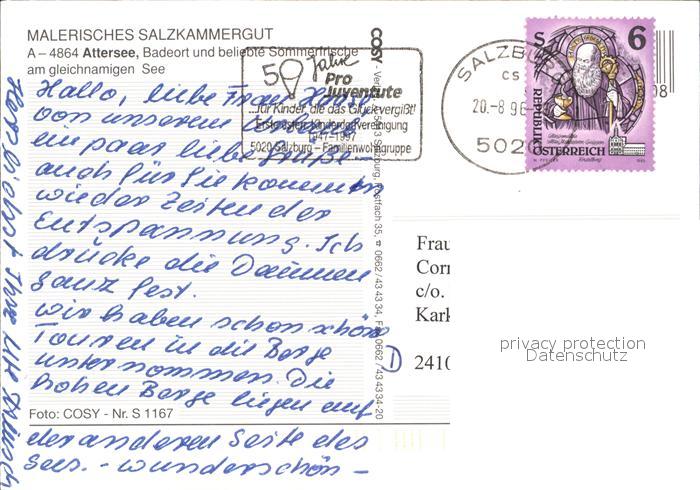 MALERISCHES SALZKAMMERGUT
A – 4864 Attersee, Badeort und beliebte Sommerfrische
am gleichnamigen See
Hallo, liebe Frau
von unserem
ein paar liebe Grüße
auch für Sie kommen
wieder Zeiten der
Entspannung. Ich
drücke die Daumen
ganz fest.
wir haben schon schöne
Touren in die Berge
unternommen. Die
hohen Berge liegen auf
der anderen Seite des
Sees. - wunderschön -
Foto: COSY - Nr. S 1167
Ihre
COSY - Salzburg, Postfach 35, 0662/43 43 34, Fax 0662/43 4334-20
50 Jahre
Pro
Juventute
...für Kinder, die das Glück vergißt!
1947-1997
5020 Salzburg – Familienwohngruppe
SALZBURG
CS
20.-8 96-
5020
S 6
REPUBLIK
ÖSTERREICH
08
Frau
c/o.
2410
privacy protection
Datenschutz